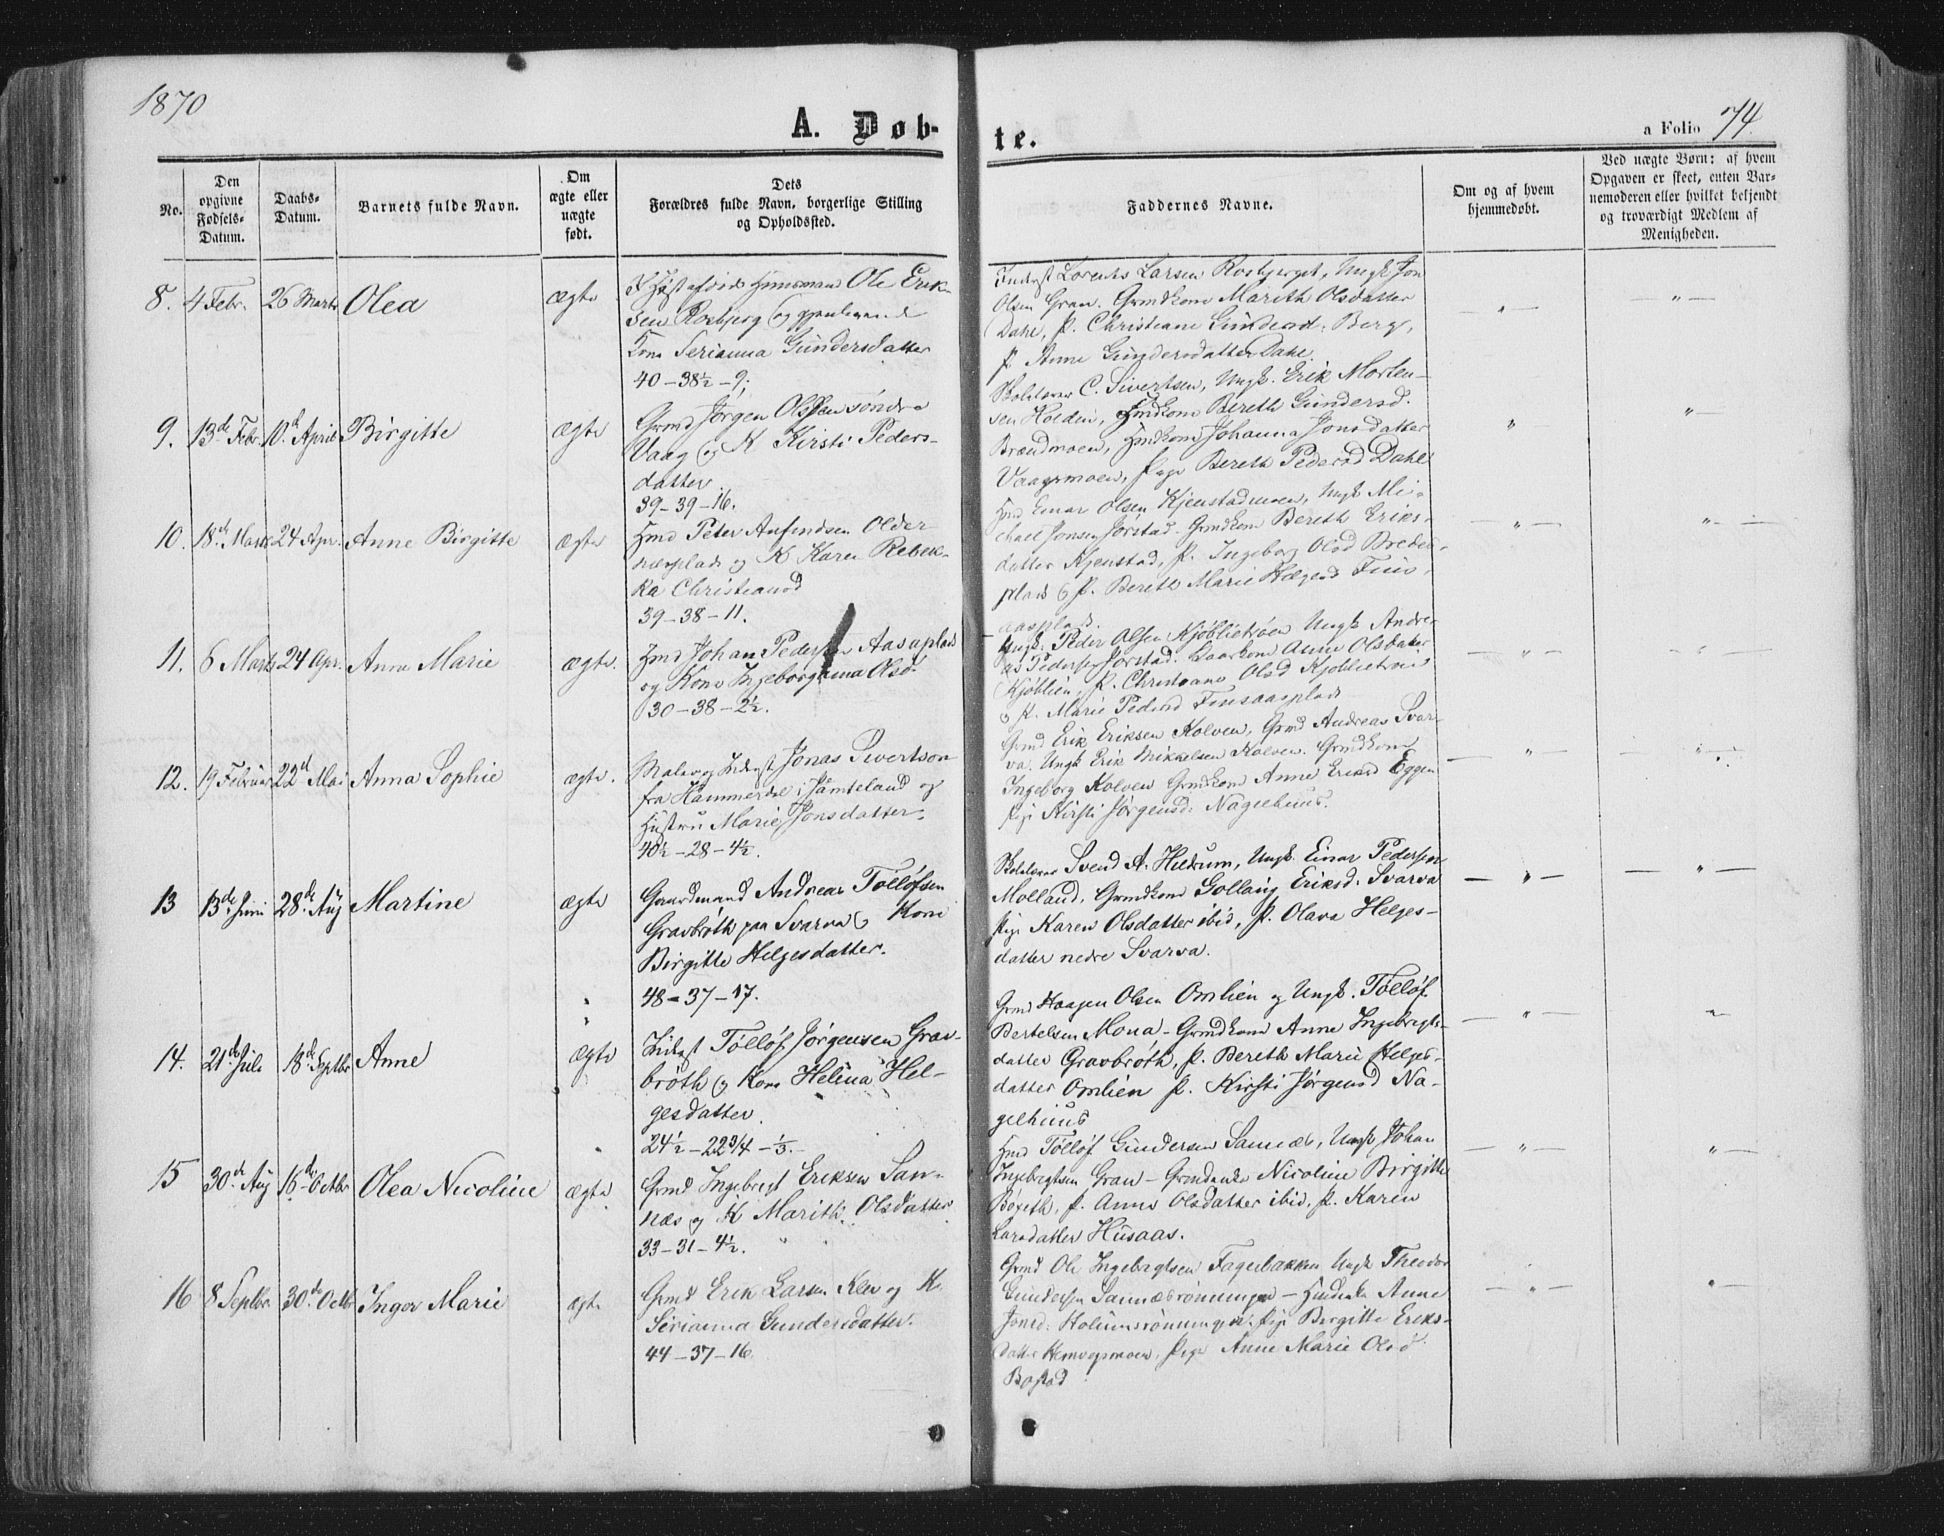 1870
A. Døb-
te.
a Folio 74.
No.
Den
opgivne
Fødsels-
Datum.
Daabs-
Datum.
Barnets fulde Navn.
Om
ægte eller
uægte
født.
Dets
Forældres fulde Navn, borgerlige Stilling
og Opholdssted.
Faddernes Navne.
Om og af hvem
hjemmedøbt.
Ved uægte Børn: af hvem
Opgaven er skeet, enten Bar-
nemoderen eller hvilket bekjendt
og troværdigt Medlem af
Menigheden.
8. 4 Febr. 26 Marts Olea ægte
Huusmand Ole Erik-
sen Rosbjerg og
Kone Serianna Gundersdatter
40-38½-9;
Inderst Lorents Larsen Rosbjerget, Ungk Jon
Olsen Gran. Grmdkone Marith Olsdatter
Dahl, P. Christiane Gundersd. Berg,
P. Anne Gundersdatter Dahl.
9. 13de Febr. 10d April Birgitte ægte
Grmd Jørgen Olssen søndre
Vaag og K Kirsti Peders-
datter
39-39-16.
Skolelærer C. Sivertsen, Ungk. Erik Morten-
sen Holden, Hmdkone Bereth Gundersd.
Brændmoen, Hmdkone Johanna Jonsdatter
Vaagsmoen, Pige Bereth Pedersd Dahl
10. 18de Marts 24 Apr. Anne Birgitte ægte
Hmd Peter Anfindsen Older-
næsplads og K Karen Rebek-
ka Christiansd
39-38-11.
Hmd Einar Olsen Kjenstadmoen, Ungk Mi-
chael Jonsen Jørstad. Grmdkone Bereth Eriks-
datter Kjenstad, P. Ingeborg Olsd Breder-
plads og P. Bereth Marie Helgesd Fins-
aasplads.
11. 6 Marts 24 Apr. Anne Marie ægte.
Hmd Johan Pedersen Aasaplads
og Kone Ingeborganna Olsd.
30-38-2½.
Ungk. Peder Olsen Kjøblietrøen Ungk Andre-
as Pedersen Jørstad. Gaarkone Anne Olsdatter
Kjøblien, P. Christiane Olsd Kjøblietrøen
og P. Marie Pedersd Finsaasplads
12. 19 Februar 22d Mai Anna Sophie ægte.
Maler og Inderst Jonas Sivertsen
fra Hammerdal i Jämteland og
Hustru Marie Jonsdatter.
40½-28-4½.
Grmd Erik Eriksen Kolven, Grmd Andreas Svar-
va. Ungk Erik Mikkelsen Kolven. Grmdkone
Ingeborg Kolven Grmdkone Anne Eriksd Eggen
Pige Kirsti Jørgensd. Nagelhuus.
13 13de Juni 28de Aug Martine ægte
Gaardmand Andreas Tølløfsen
Gravbrøth paa Svarva og Kone
Birgitte Helgesdatter.
48-37-17.
Skolelærer Svend A. Heldrum, Ungk. Einar Pedersen
Molland, Grmdkone Gollaug Eriksd. Svarva
Pige Karen Olsdatter ibid, P. Olava Helges-
datter nedre Svarva.
14. 21de Juli 18de Septbr Anne ægte
Inderst Tølløf Jørgensen Grav-
brøth og Kone Helena Hel-
gesdatter.
24½-22¾-⅓.
Grmd Haagen Olsen Omlien og Ungk. Tølløf
Bertelsen Mona - Grmdkone Anne Ingebrigts-
datter Gravbrøth, P. Bereth Marie Helges-
datter Omlien P. Kirsti Jørgensd Na-
gelhuus
15 30de Aug 16de Octbr Olea Nicoline ægte
Grmd Ingebrigt Eriksen San-
næs og K Marith Olsdatter
33-31-4½.
Hmd Tølløf Gundersen Sannæs, Ungk Johan
Ingebrigtsen Gran - Grmdenke Nicoline Birgitte
P. Anne Olsdatter ibid, P. Karen
Larsdatter Husaas.
16 8 Septbr 30de Octbr Inger Marie ægte
Grmd Erik Larsen Klev og K
Serianna Gundersdatter.
44-37-16.
Grmd Ole Ingebrigtsen Fagerbakken Ungk Theodor
Gundersen Sannæsrønningen - Hmdenke Anne
Jonsd. Holumsrønningen. Pige Birgitte Eriks-
datter Pige Anne Marie Olsd
Bostad